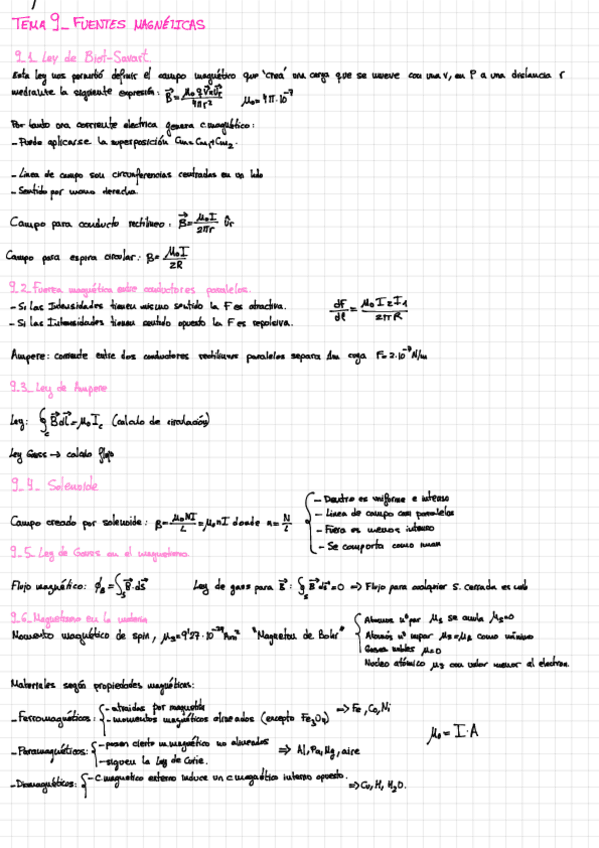 TEMA 9_ FUENTES MAGNÉTICAS
9.1_ Ley de Biot-Savart.
Esta ley nos permitió definir el campo magnético que 'crea' una carga que se mueve con una v, en P a una distancia r
mediante la siguiente expresión: B⃗ = μ₀ q v⃗ x û_r / 4πr²   μ₀ = 4π·10⁻⁷
Por tanto una corriente electrica genera c. magnético:
- Puede aplicarse la superposición Cm = Cm₁ + Cm₂.
- Linea de campo son circunferencias centradas en un
- Sentido por mano derecha.
Campo para conducto rectilineo: B⃗ = μ₀I / 2πr û_r
Campo para espira circular: B = μ₀I / 2R
9.2_ Fuerza magnética entre conductores paralelos.
- Si las Intensidades tienen mismo sentido la F es atractiva.
- Si las Intensidades tienen sentido opuesto la F es repulsiva.
dF/dl = μ₀ I₂ I₁ / 2πR
Ampere: corriente entre dos conductores rectilineos paralelos separa 1m cuya F = 2·10⁻⁷ N/m
9.3_ Ley de Ampere
Ley: ∮c B⃗ dl⃗ = μ₀ I_c (calculo de circulación)
Ley Gauss → calculo flujo
9_4_ Solenoide
Campo creado por solenoide: B = μ₀NI / L = μ₀nI donde n = N/L
- Dentro es uniforme e intenso
- Linea de campo son paralelas
- Fuera es menos intenso
- Se comporta como iman
9_5_ Ley de Gauss en el magnetismo.
Flujo magnético: ϕ_B = ∫s B⃗·ds⃗   Ley de gass para B⃗: ∮s B⃗·ds⃗ = 0 => Flujo para cualquier S. cerrada es nulo
9_6_ Magnetismo en la materia
Momento magnético de spin, μ_B = 9'27·10⁻²⁴ Am² "Magneton de Bohr"
Atomos nº par μs se anula μs = 0
Atomos nº impar μs = μB como mínimo
Gases nobles μ = 0
Nucleo atómico μs con valor menor al electron.
Materiales según propiedades magnéticas:
- Ferromagnéticos: - atraidos por magnetita
- momentos magnéticos alineados (excepto Fe₃O₄) => Fe, Co, Ni
μ₀ = I·A
- Paramagnéticos: - poseen cierto m. magnético no alineados
- siguen la Ley de Curie. => Al, Pa, Mg, aire
- Diamagnéticos: - c. magnetico externo induce un c. magnético interno opuesto. => Cu, H, H₂O.